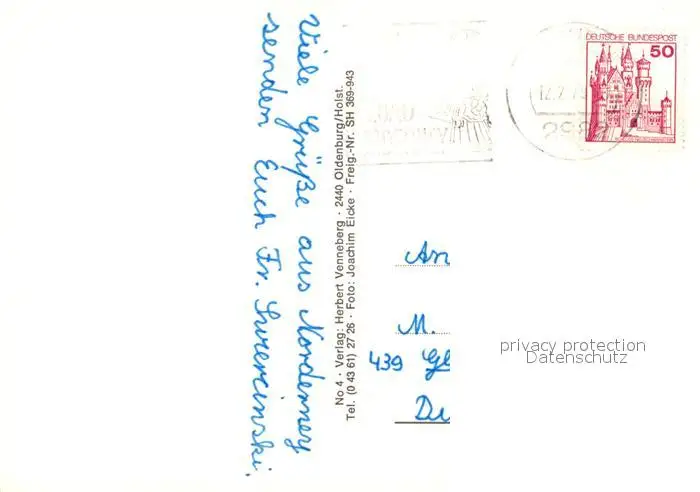 Viele Grüße aus Norderney
senden Euch Fr.
No 4 · Verlag: Herbert Venneberg · 2440 Oldenburg/Holst.
Tel. (0 43 61) 27 26 · Foto: Joachim Eicke · Freig.-Nr. SH 369-943
DEUTSCHE BUNDESPOST
50
298
An
M.
439 Gl
De
privacy protection
Datenschutz